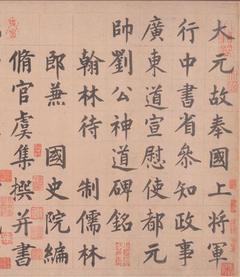 大元故奉國上將軍
行中書省參知政事
廣東道宣慰使都元
帥劉公神道碑銘
翰林待制儒林
郎兼國史院編
脩官虞集撰并書